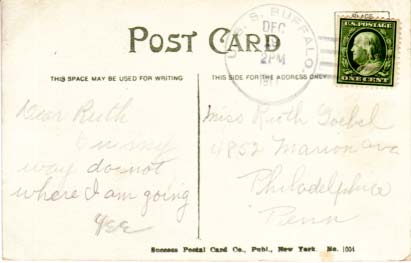 POST CARD
PLACE
U.S.S. BUFFALO.
DEC
2PM
U.S. POSTAGE
ONE CENT
THIS SPACE MAY BE USED FOR WRITING
THIS SIDE FOR THE ADDRESS ONLY
Dear Ruth
On my
way do not
where I am going
Miss Ruth Goebel
4852 Marion ave
Philadelphia
Penn
Success Postal Card Co., Publ., New York. No. 1004